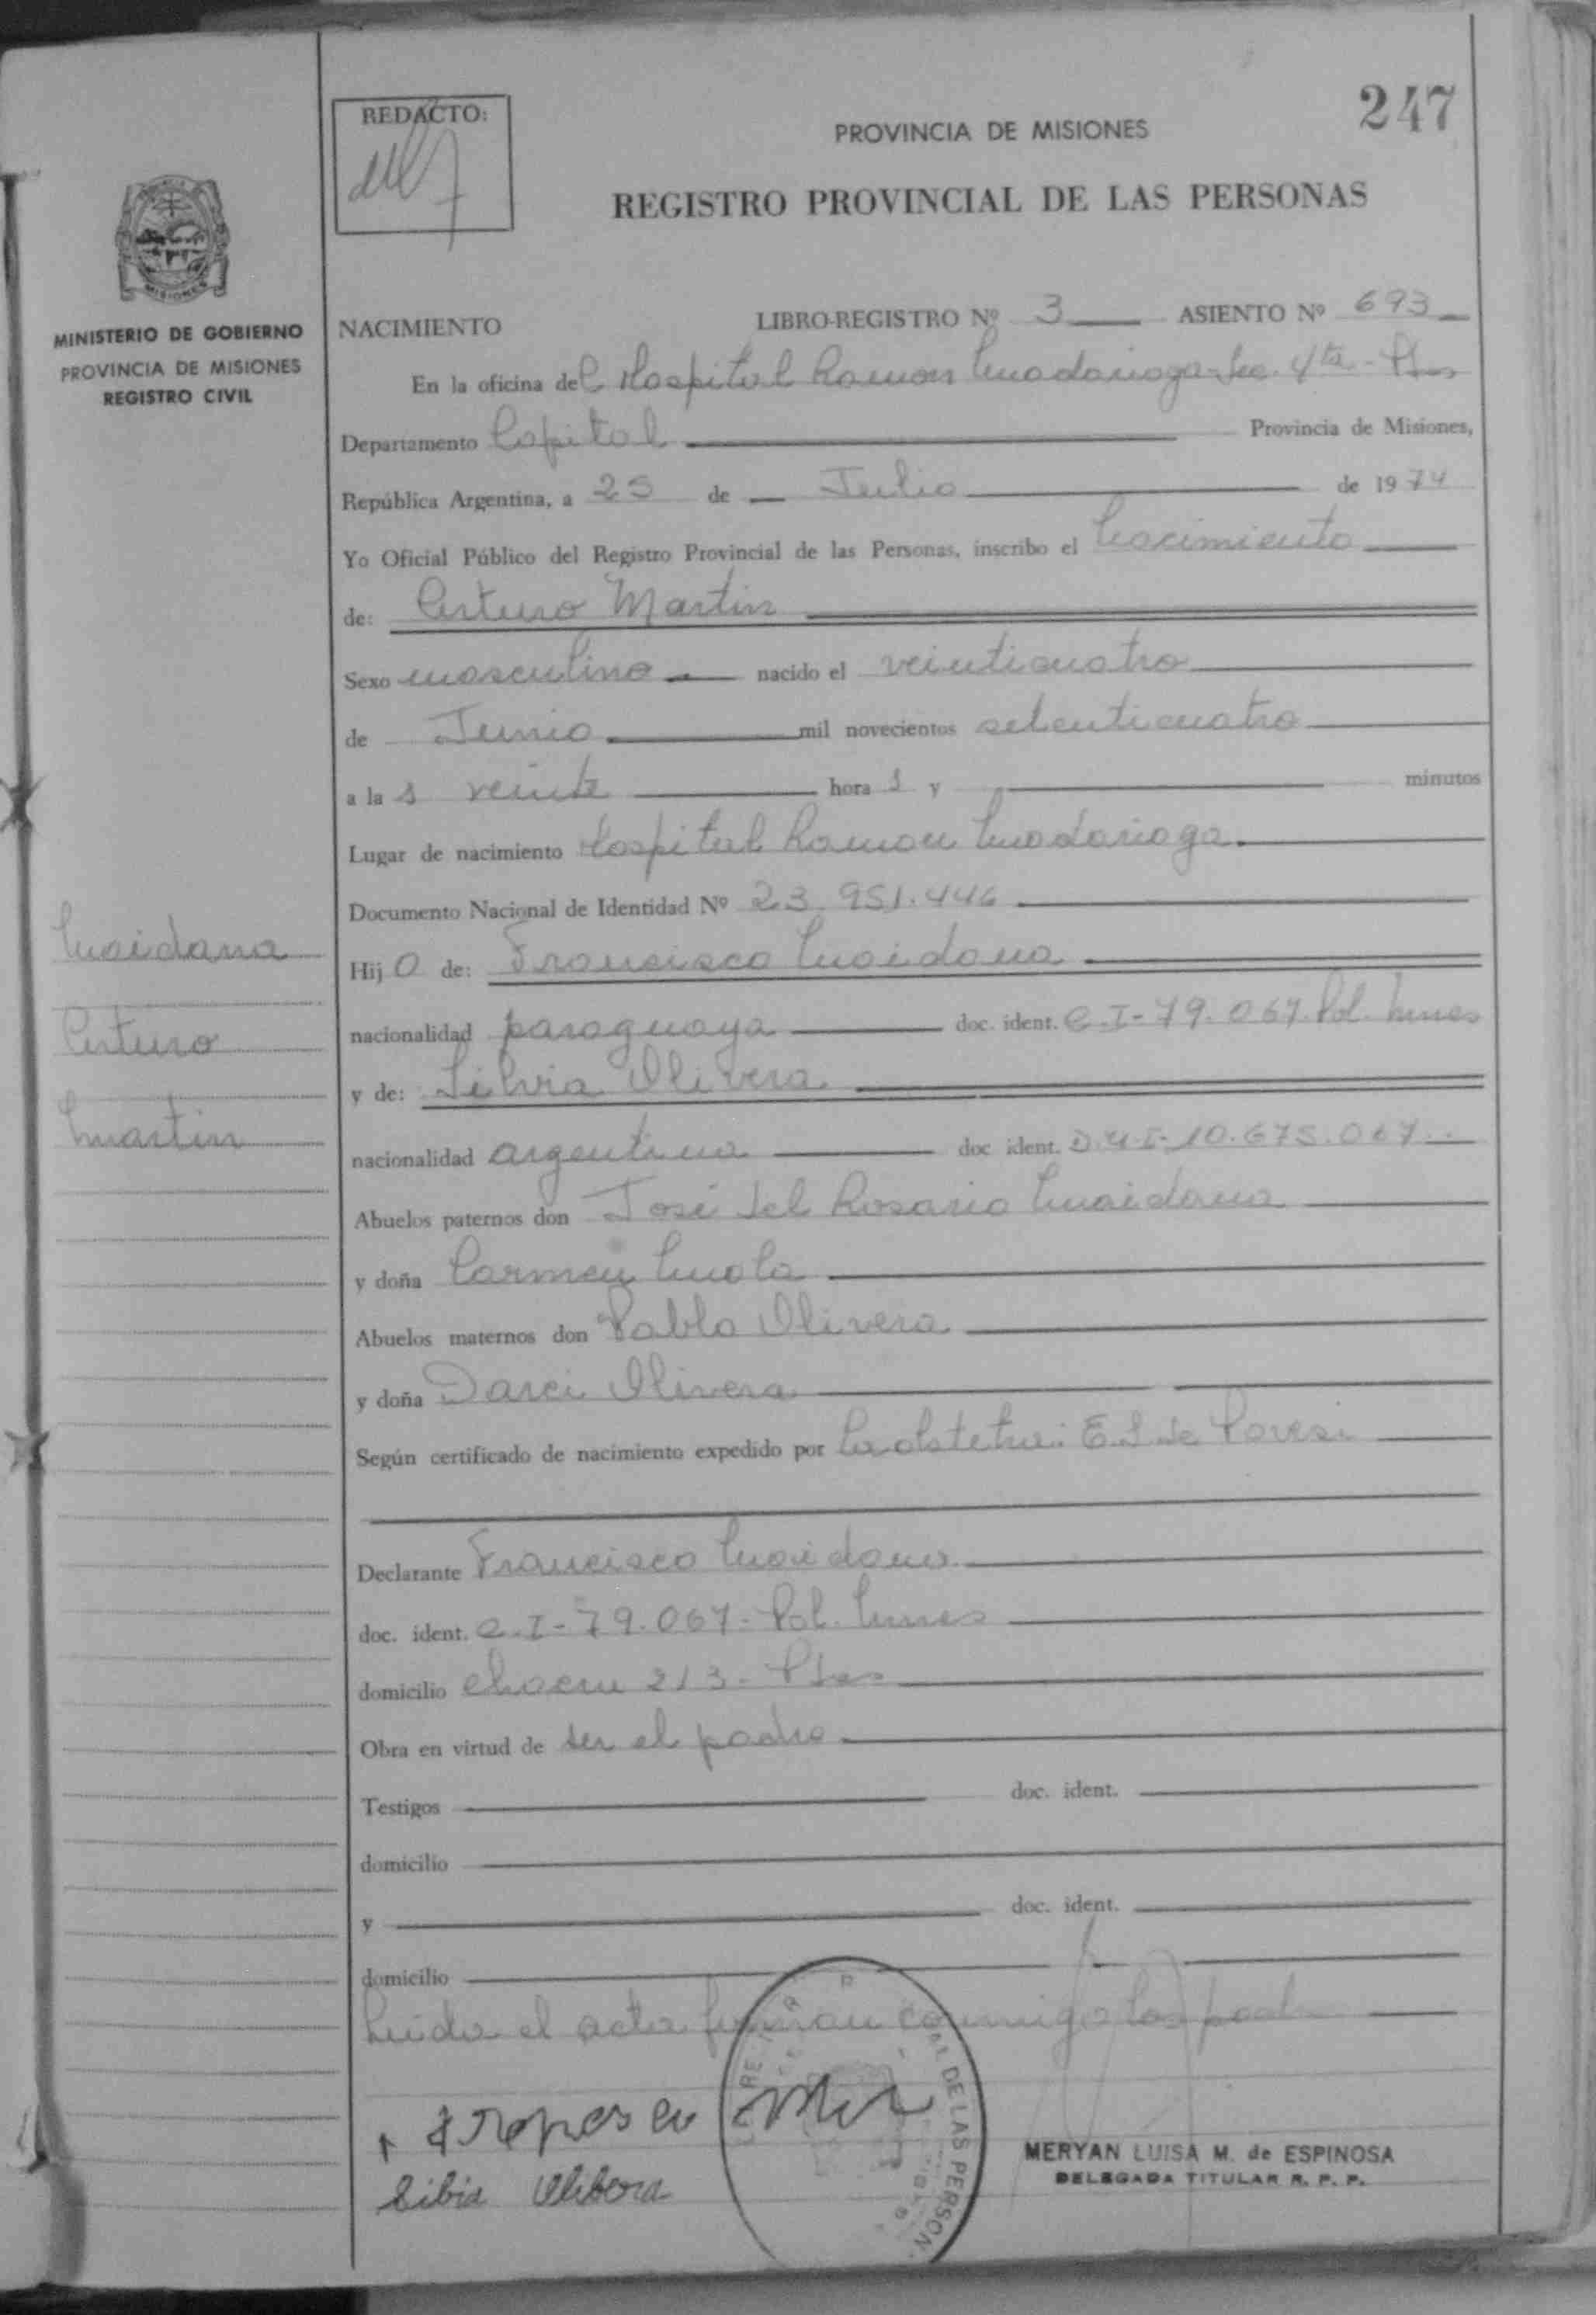 247
REDACTO:
PROVINCIA DE MISIONES
REGISTRO PROVINCIAL DE LAS PERSONAS
MISIONES
MINISTERIO DE GOBIERNO
PROVINCIA DE MISIONES
REGISTRO CIVIL
NACIMIENTO LIBRO-REGISTRO Nº 3 ASIENTO Nº 693
En la oficina del Hospital Ramon Madariaga - Sec. 4ta - Pdas
Departamento Capital Provincia de Misiones,
República Argentina, a 25 de Julio de 1974
Yo Oficial Público del Registro Provincial de las Personas, inscribo el Nacimiento
de: Arturo Martin
Sexo masculino nacido el veinticuatro
de Junio mil novecientos setenticuatro
a la s veinte hora s y minutos
Lugar de nacimiento Hospital Ramon Madariaga
Documento Nacional de Identidad Nº 23.951.446
Maidana
Hijo de: Francisco Maidana
Arturo
nacionalidad paraguaya doc. ident. C.I- 79.067. Pol. Mnes
y de: Silvia Olivera
Martin
nacionalidad argentina doc ident. D.N.I- 10.675.067
Abuelos paternos don José del Rosario Maidana
y doña Carmen Mola
Abuelos maternos don Pablo Olivera
y doña Darci Olivera
Según certificado de nacimiento expedido por la obstetra: E. S. de
Declarante Francisco Maidana
doc. ident. C.I- 79.067- Pol. Mnes
domicilio chacra 213- Pdas
Obra en virtud de ser el padre
Testigos doc. ident.
domicilio
y doc. ident.
domicilio
Leida el acta firman conmigo los padres
Silvia Olibera
DE LAS PERSON
MERYAN LUISA M. de ESPINOSA
DELEGADA TITULAR R. P. P.